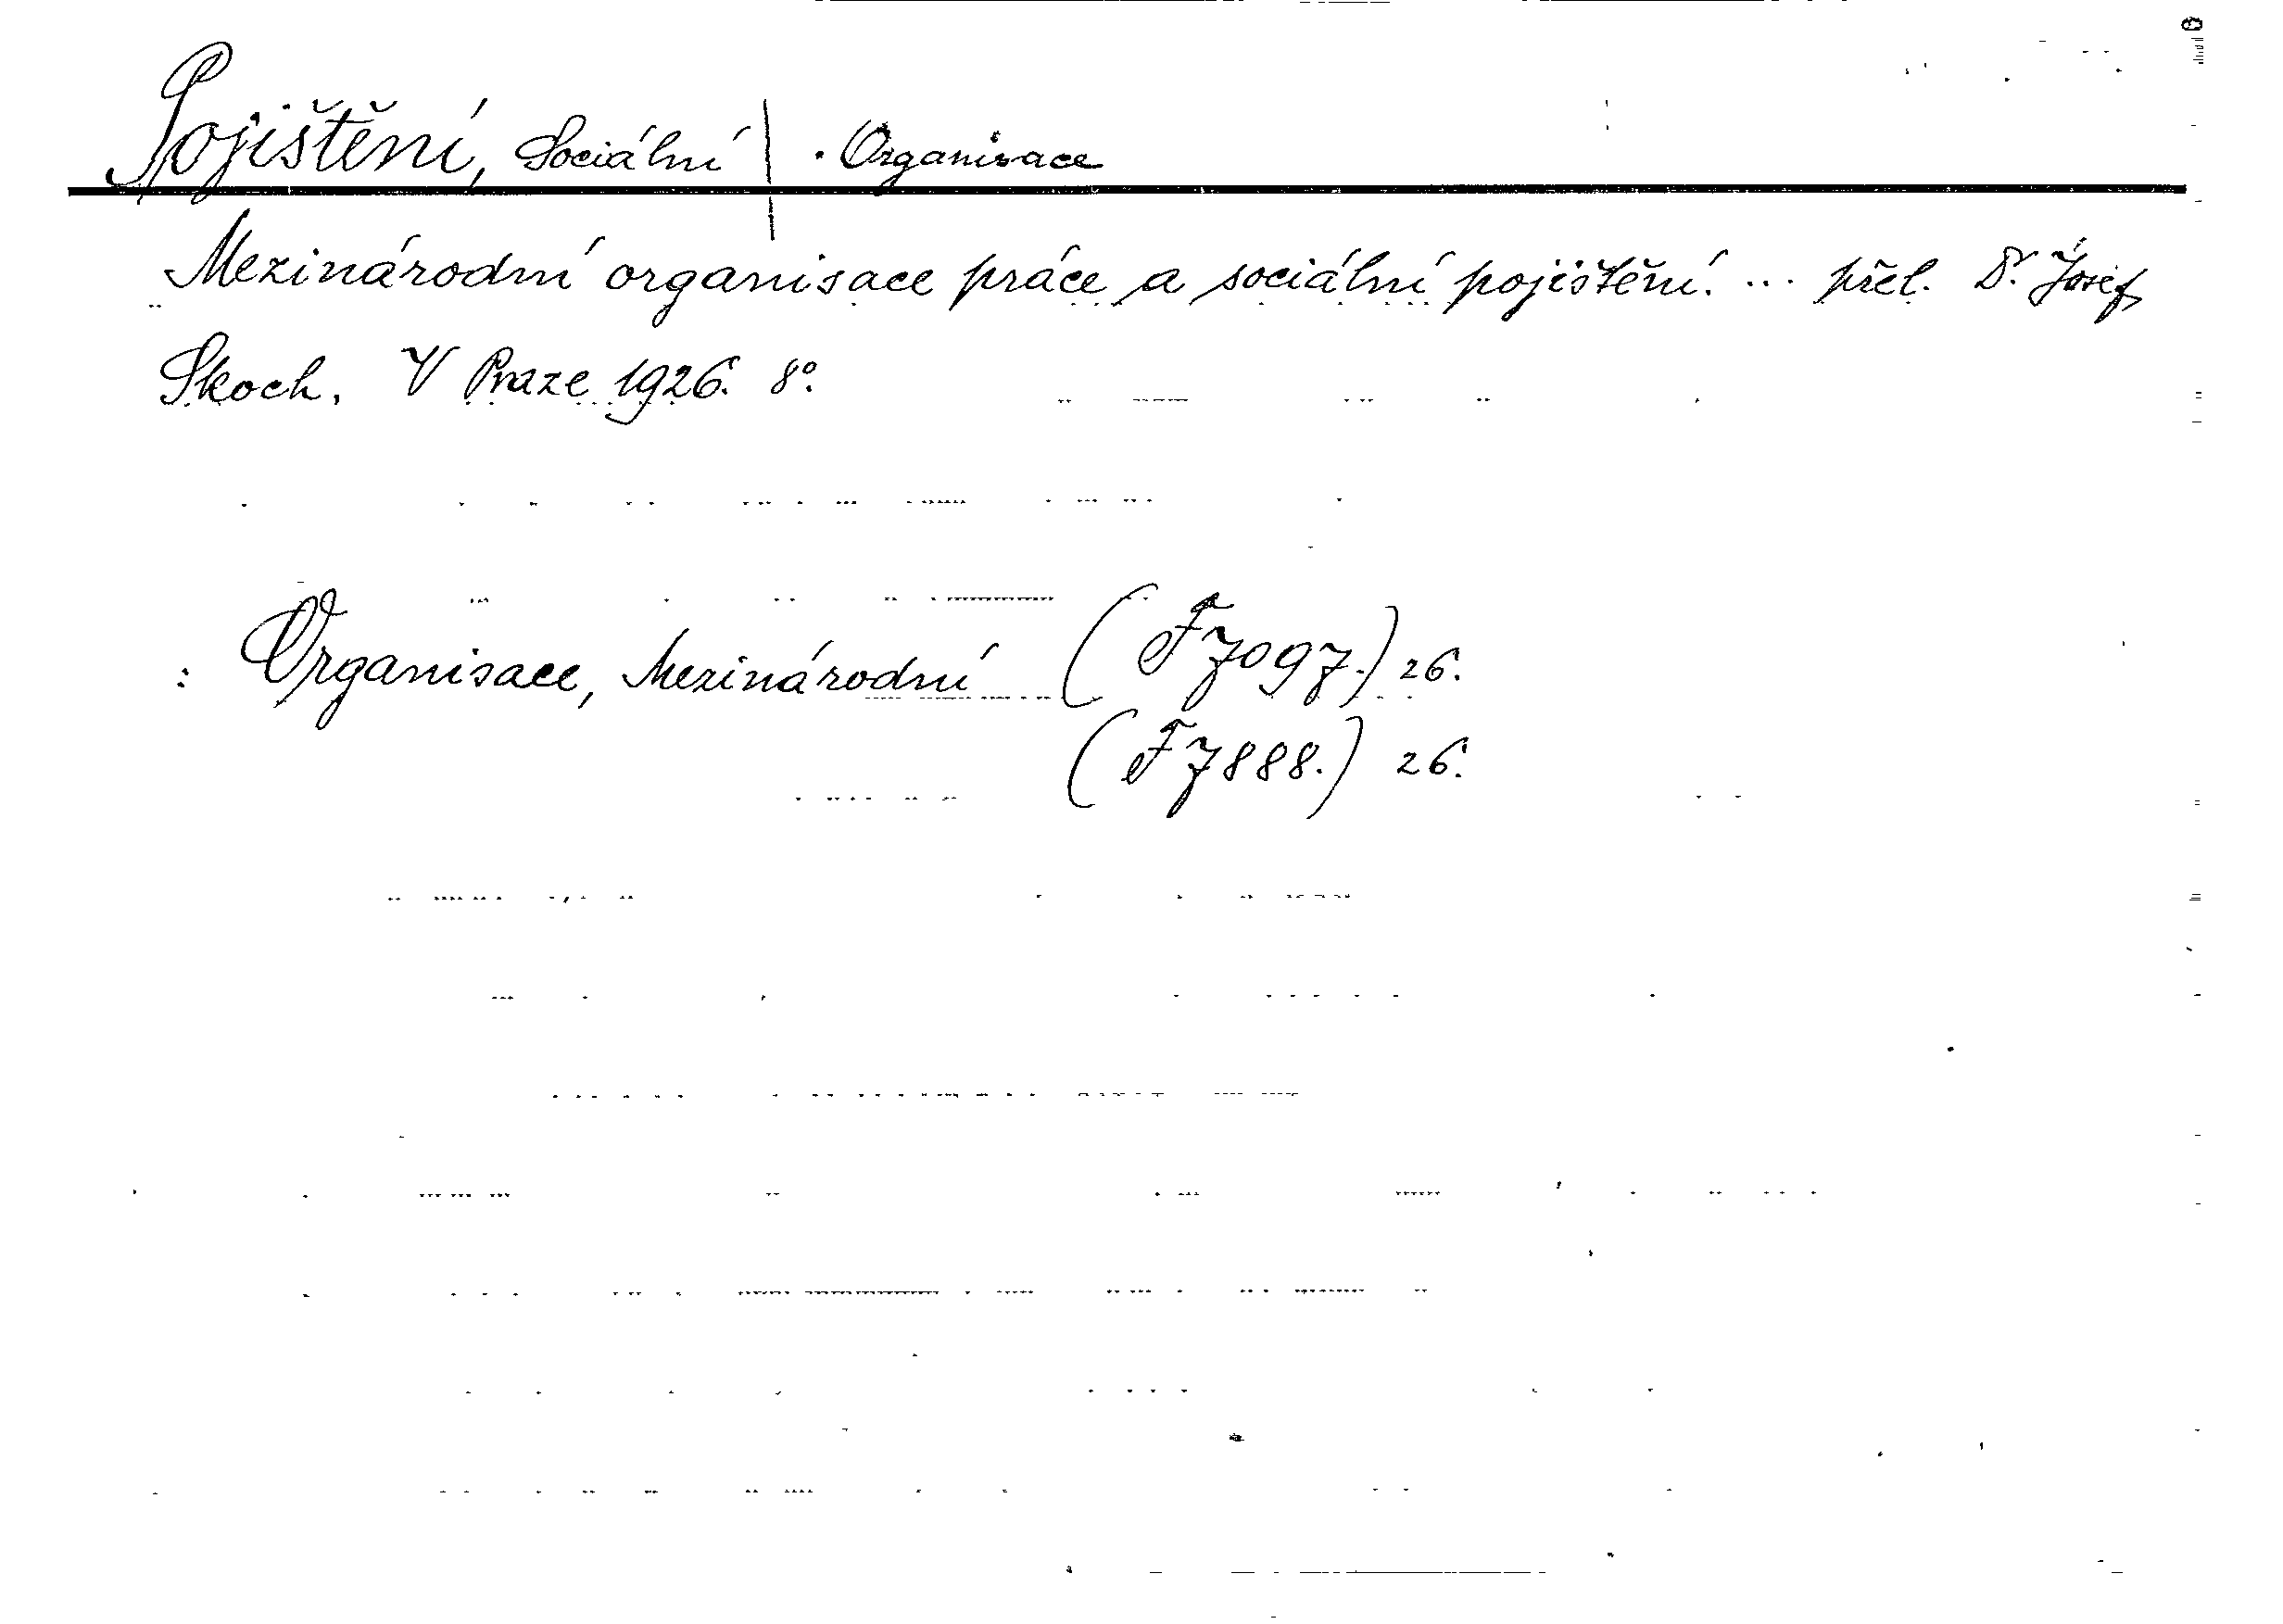 Pojištění, Sociální | . Organisace
Mezinárodní organisace práce a sociální pojištění. ... přel. Dr. Josef
Skoch. V Praze 1926. 8°.
: Organisace, Mezinárodní (F 7097.) 26.
(F 7888.) 26.